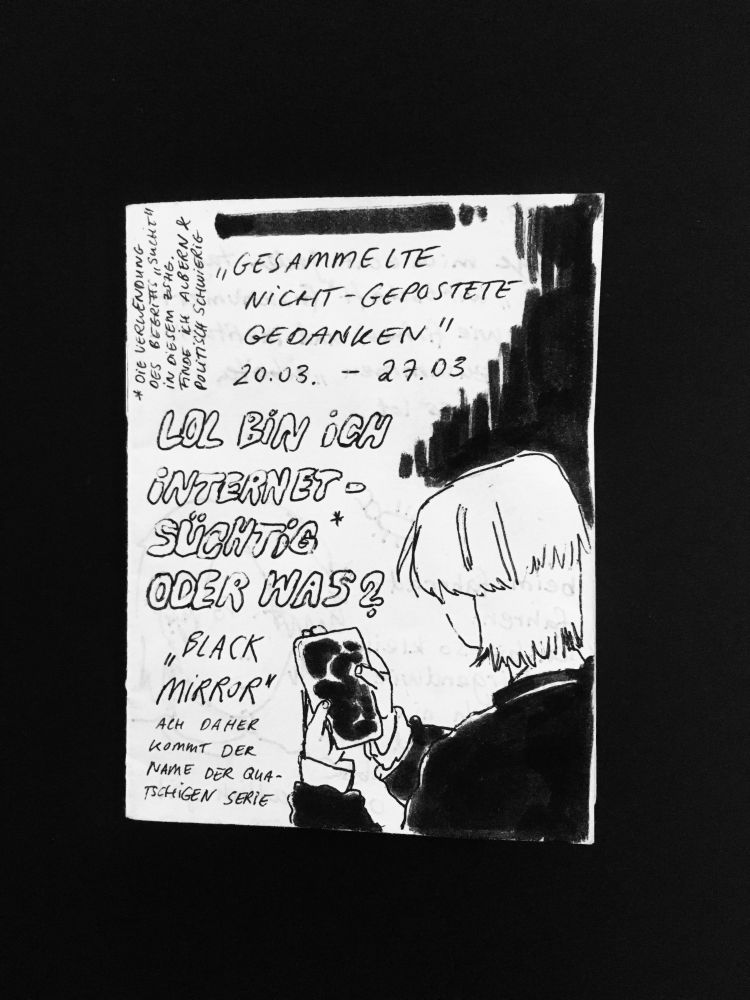 „GESAMMELTE
NICHT-GEPOSTETE
GEDANKEN"
20.03. - 27.03
* DIE VERWENDUNG
DES BEGRIFFS „SUCHT"
IN DIESEM ZSHG.
FINDE ICH ALBERN &
POLITISCH SCHWIERIG
LOL BIN ICH
INTERNET-
SÜCHTIG *
ODER WAS?
„BLACK
MIRROR"
ACH DAHER
KOMMT DER
NAME DER QUA-
TSCHIGEN SERIE